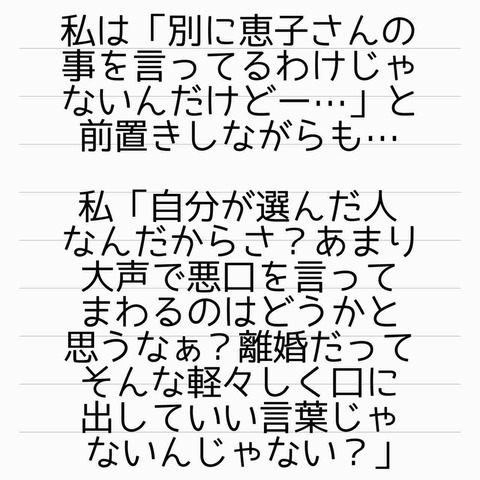 私は「別に恵子さんの
事を言ってるわけじゃ
ないんだけどー…」と
前置きしながらも…
私「自分が選んだ人
なんだからさ？あまり
大声で悪口を言って
まわるのはどうかと
思うなぁ？離婚だって
そんな軽々しく口に
出していい言葉じゃ
ないんじゃない？」